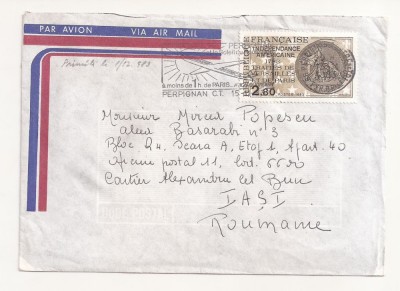 PAR AVION
VIA AIR MAIL
à moins de 1 h. de PARIS
PERPIGNAN C.T. 15
RÉPUBLIQUE FRANÇAISE
INDÉPENDANCE
AMÉRICAINE
1783
TRAITÉS DE
VERSAILLES
ET DE PARIS
2,80
Monsieur Mircea Popescu
aleea Basarabi n° 3
Bloc Q4, Scara A, Etaj 1, Apart. 40
Oficiu postal 11, Cod. 6600
Cartier Alexandru cel Bun
IAȘI
Roumanie